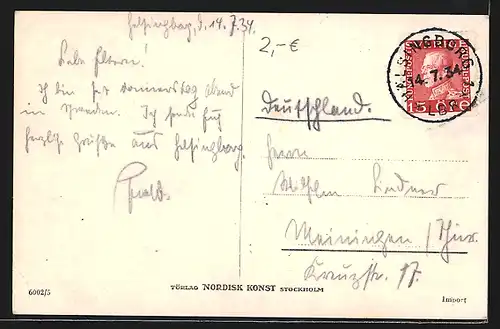 Helsingborg, d. 14. 7. 34.
2,-€
HELSINGBORG
14.7.34
Liebe Eltern!
Ich bin seit Donnerstag abend
in Schweden. Ich sende Euch
herzliche Grüße aus Helsingborg.
Deutschland.
Herrn
Wilhelm Lindner
Meiningen / Thür.
Kreuzstr. 17.
FÖRLAG NORDISK KONST STOCKHOLM
6002/5
Import